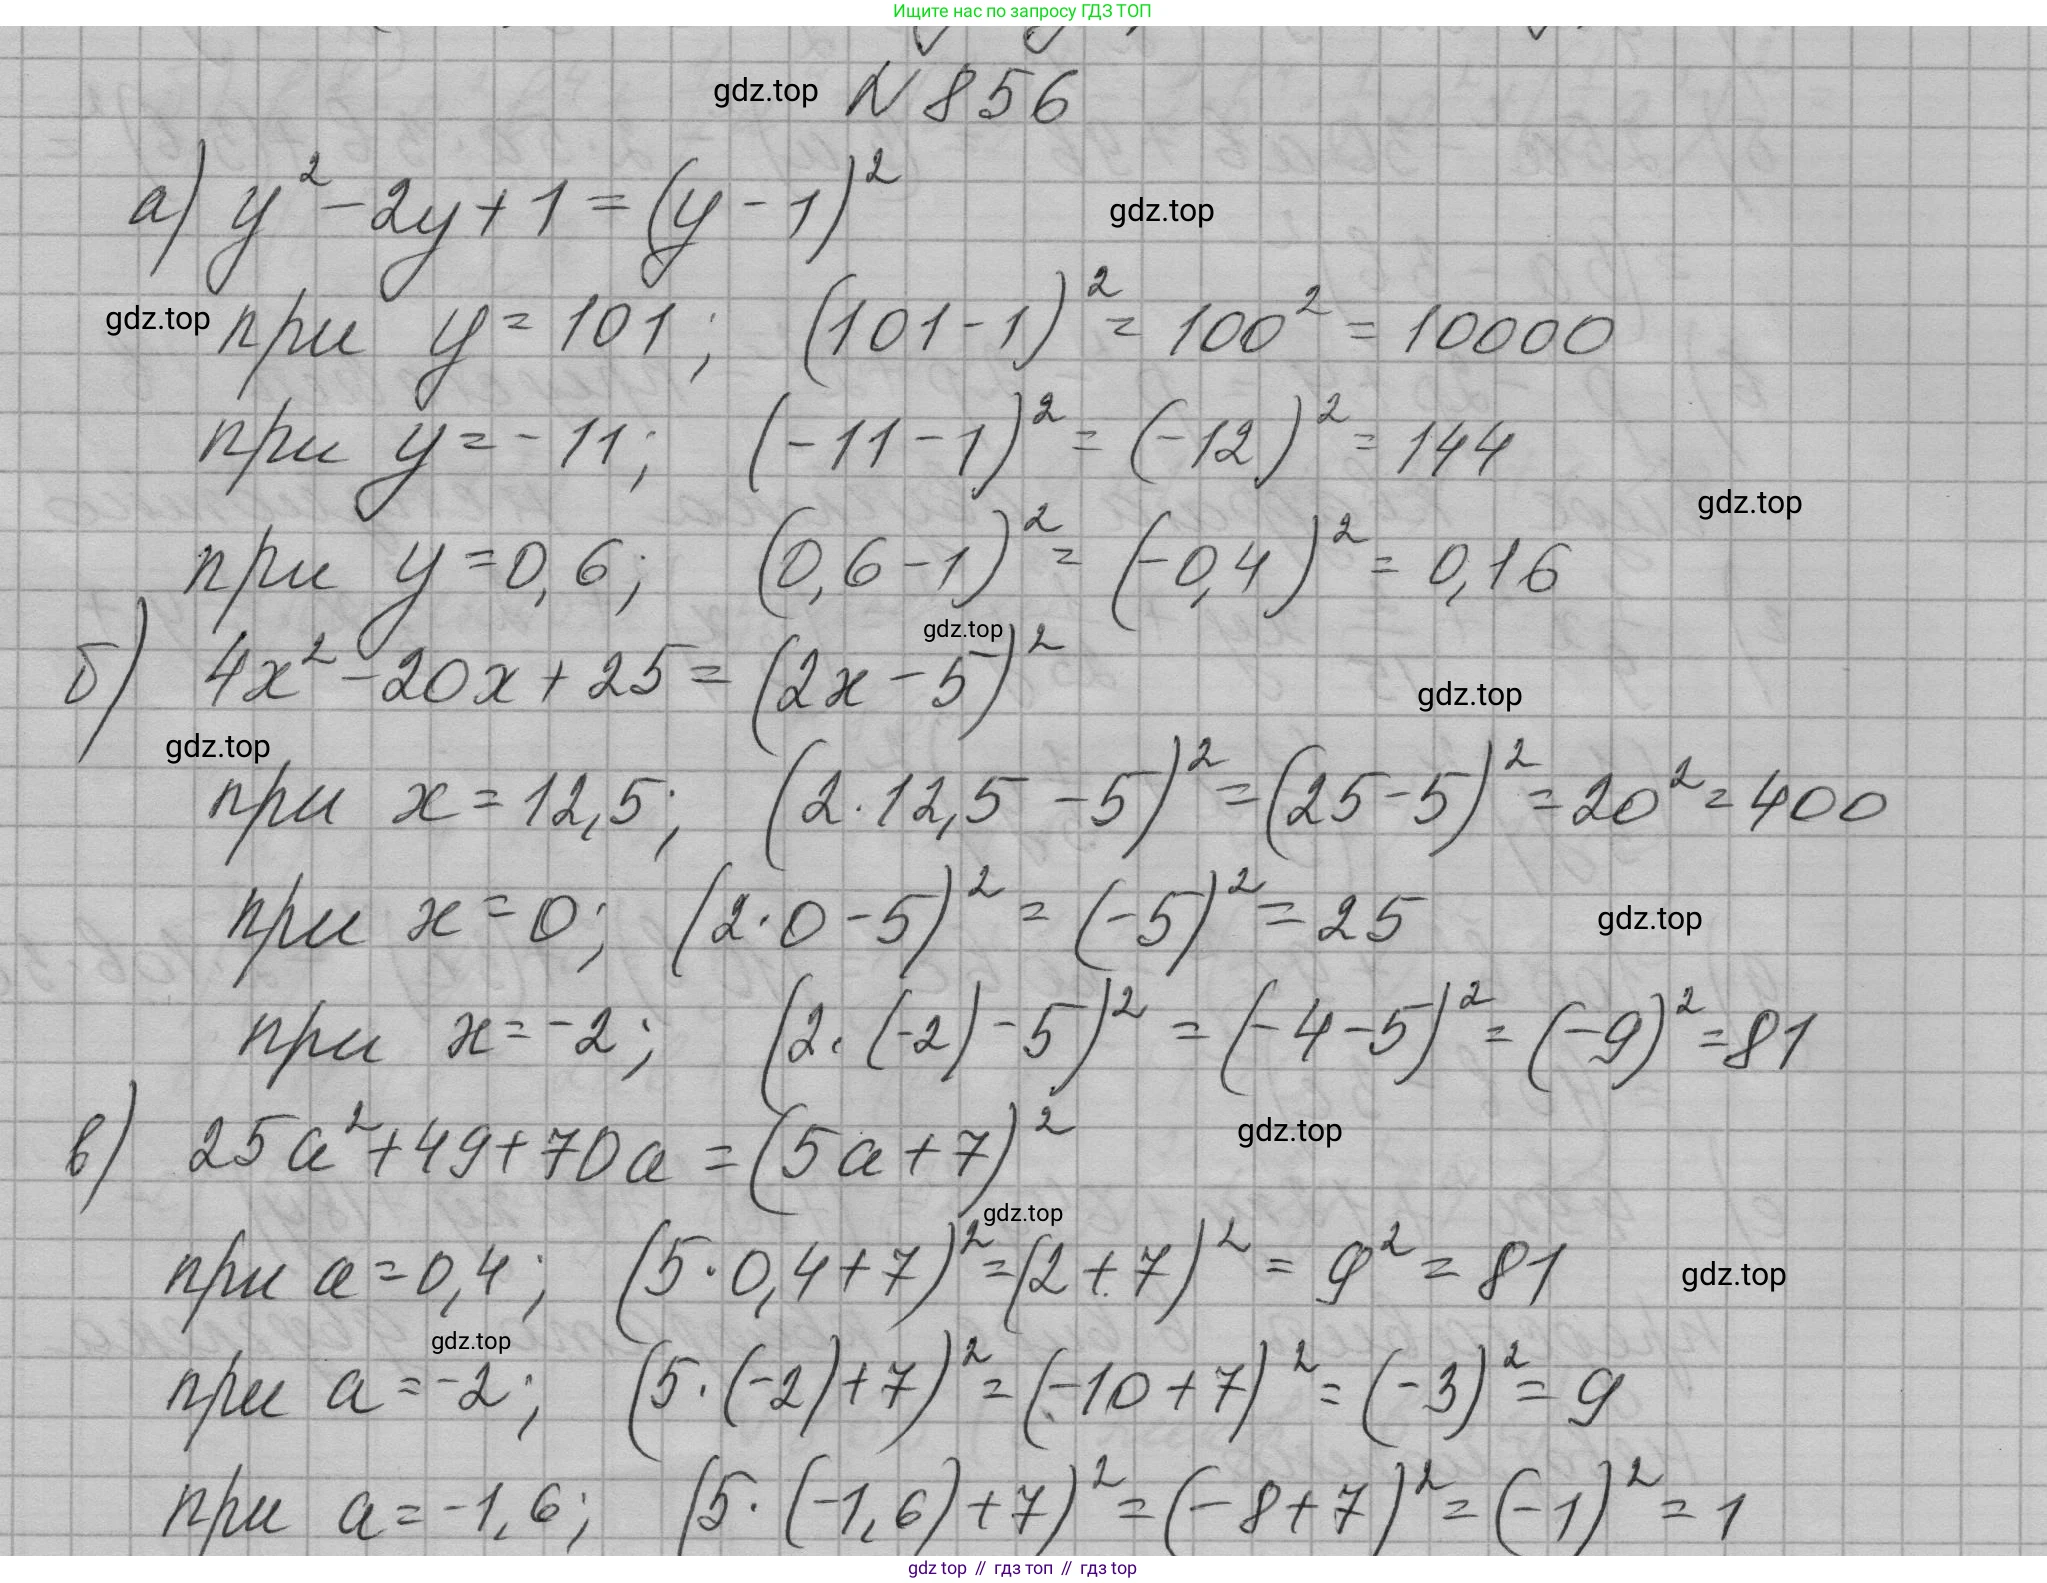 Ищите нас по запросу ГДЗ ТОП
gdz.top N 856
а) y² - 2y + 1 = (y - 1)²
gdz.top
gdz.top при y = 101; (101 - 1)² = 100² = 10000
при y = -11; (-11 - 1)² = (-12)² = 144
gdz.top
при y = 0,6; (0,6 - 1)² = (-0,4)² = 0,16
gdz.top
б) 4x² - 20x + 25 = (2x - 5)²
gdz.top
gdz.top
при x = 12,5; (2 · 12,5 - 5)² = (25 - 5)² = 20² = 400
при x = 0; (2 · 0 - 5)² = (-5)² = 25 gdz.top
при x = -2; (2 · (-2) - 5)² = (-4 - 5)² = (-9)² = 81
gdz.top
в) 25a² + 49 + 70a = (5a + 7)²
gdz.top
при a = 0,4; (5 · 0,4 + 7)² = (2 + 7)² = 9² = 81 gdz.top
gdz.top
при a = -2; (5 · (-2) + 7)² = (-10 + 7)² = (-3)² = 9
при a = -1,6; (5 · (-1,6) + 7)² = (-8 + 7)² = (-1)² = 1
gdz top // гдз топ // gdz top